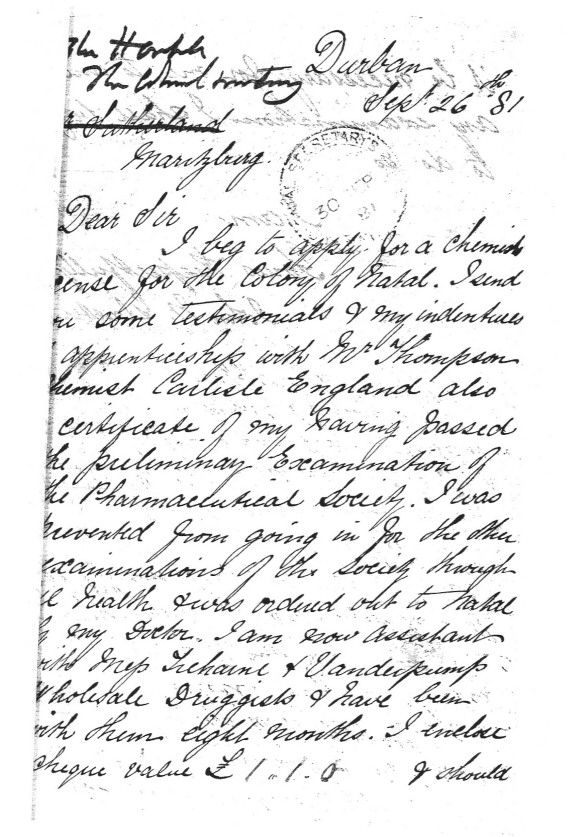 Durban
Sept. 26th 81
The Honble
The Colonial Secretary
r Sutherland
Maritzburg.
SECRETARY'S
30 SEP
81
Dear Sir
I beg to apply for a Chemists
cense for the Colony of Natal. I send
ou some testimonials & my indentures
apprenticeship with Mr Thompson
hemist Carlisle England also
certificate of my having passed
he preliminary Examination of
he Pharmaceutical Society. I was
revented from going in for the other
examinations of the Society through
ll health & was ordered out to Natal
by my Doctor. I am now assistant
with Mess Trehaine & Vanderpump
Wholesale Druggists & have been
with them eight months. I enclose
cheque value £ 1. 1. 0 & should